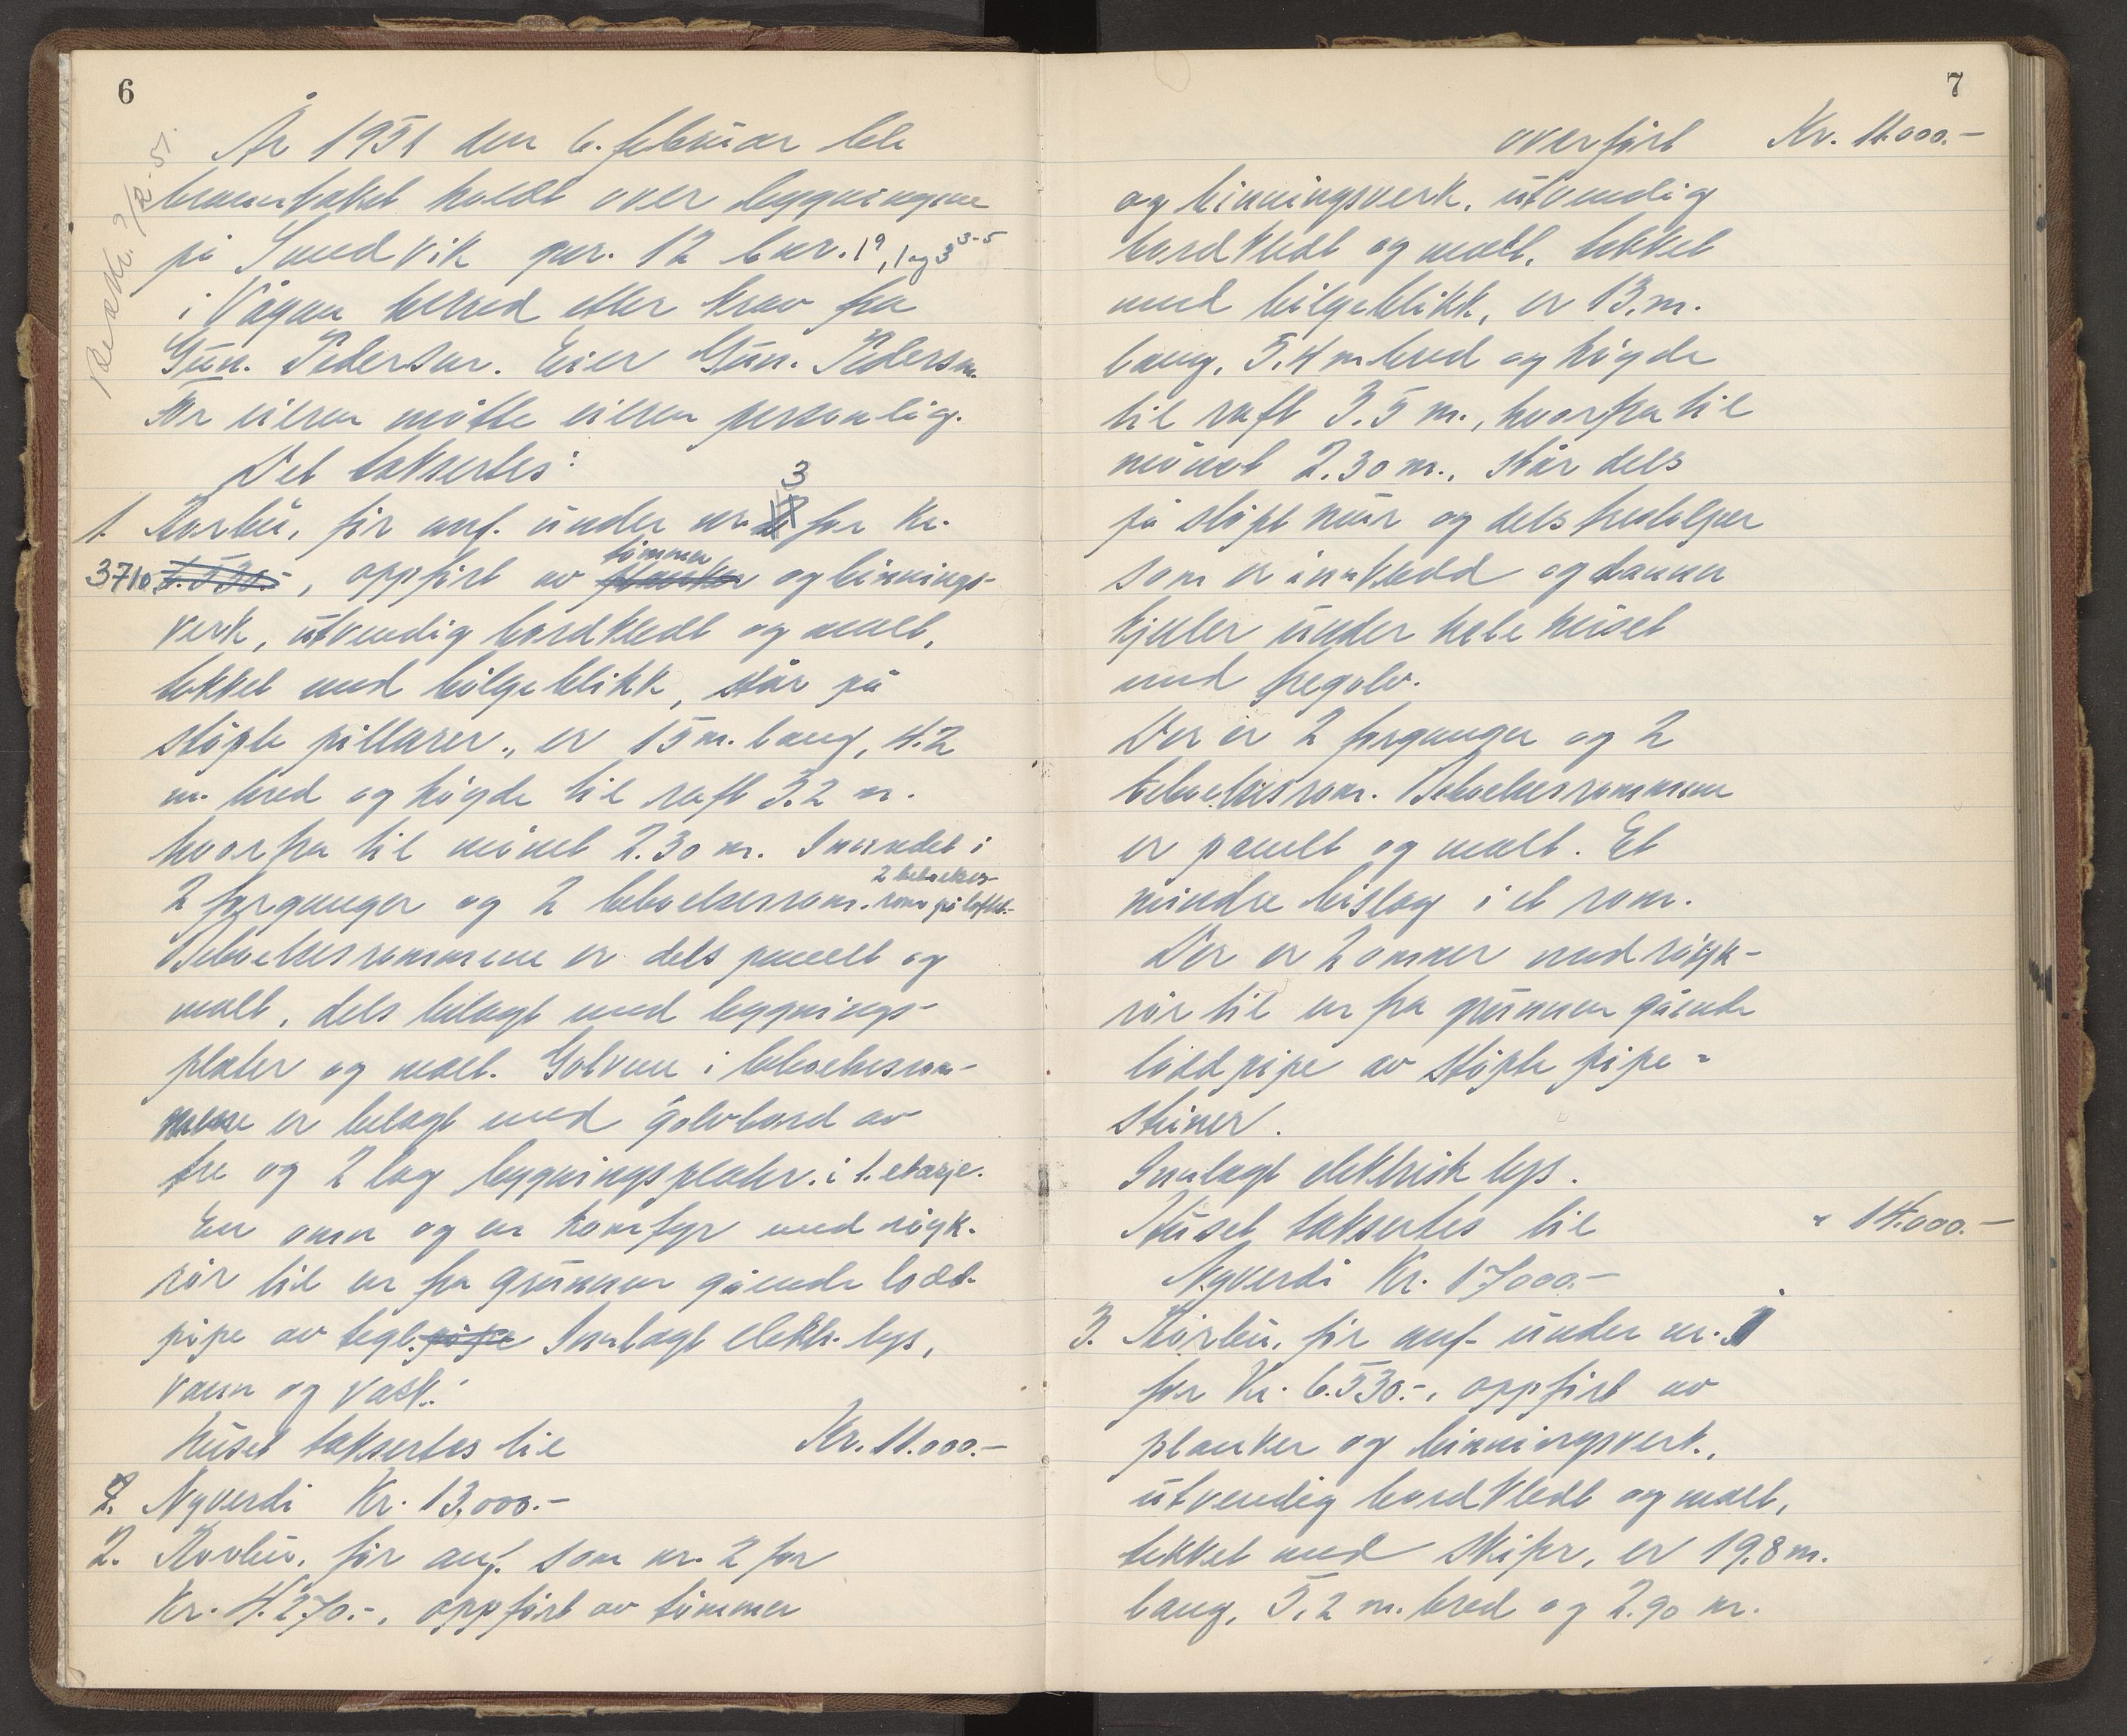 6
År 1951 den 6. februar ble
branntakst holdt over bygningene
på Sundvik gnr. 12 bnr. 19, 1 og 3 3-5
i Vågan herred etter krav fra
Gun. Pedersen. Eier Gun. Pedersen.
For eieren møtte eieren personlig.
Det taksertes:
1. Rorbu, før anf. under nr. 3 for kr.
3710 , oppført av tømmer planker og binnings-
verk, utvendig bordkledt og malt,
tekket med bølgeblikk, står på
støpte pillarer, er 15 m. lang, 4.2
m. bred og høgde til raft 3.2 m.
hvorfra til mønet 2.30 m. Innredet i
2 forganger og 2 beboelsesrom. 2 beboelses-
rom på loftet.
Beboelsesrommene er dels panelt og
malt, dels belagt med bygnings-
plater og malt. Golvene i beboelsesrom-
mene er belagt med golvbord av
tre og 2 lag bygningsplater. i 1. etasje.
En omn og en komfyr med røyk-
rør til en fra grunnen gående lodd-
pipe av tegl. pipe Innlagt elektr. lys,
vann og vask.
Huset taksertes til Kr. 11.000.-
2. Nyverdi Kr. 13,000.-
2. Rorbu, før anf. som nr. 2 for
Kr. 4.270.-, oppført av tømmer
Besikt. 7/2-51.
7
overført Kr. 11.000.-
og binningsverk, utvendig
bordkledt og malt, tekket
med bølgeblikk, er 13. m.
lang, 5.4 m bred og høgde
til raft 3.5 m., hvorfra til
mønet 2.30 m., står dels
på støpt mur og dels trestolper
som er innkledd og danner
kjeller under hele huset
med tregolv.
Der er 2 forganger og 2
beboelsesrom. Beboelsesrommene
er panelt og malt. Et
mindre bislag i et rom.
Der er 2 omner med røyk-
rør til en fra grunnen gående
loddpipe av støpte pipe-
steiner.
Innlagt elektrisk lys.
Huset taksertes til " 14.000.-
Nyverdi Kr. 17000.-
3. Rorbu, før anf. under nr. 1
for Kr. 6.530.-, oppført av
planker og binningsverk,
utvendig bordkledt og malt,
tekket med skifer, er 19.8 m.
lang, 5.2 m. bred og 2.90 m.